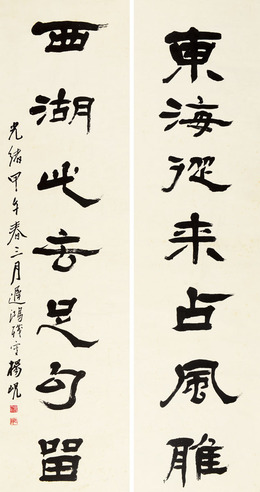 東海從来占風雅
西湖此去足句留
光緒甲午春三月遲鴻殘守楊峴